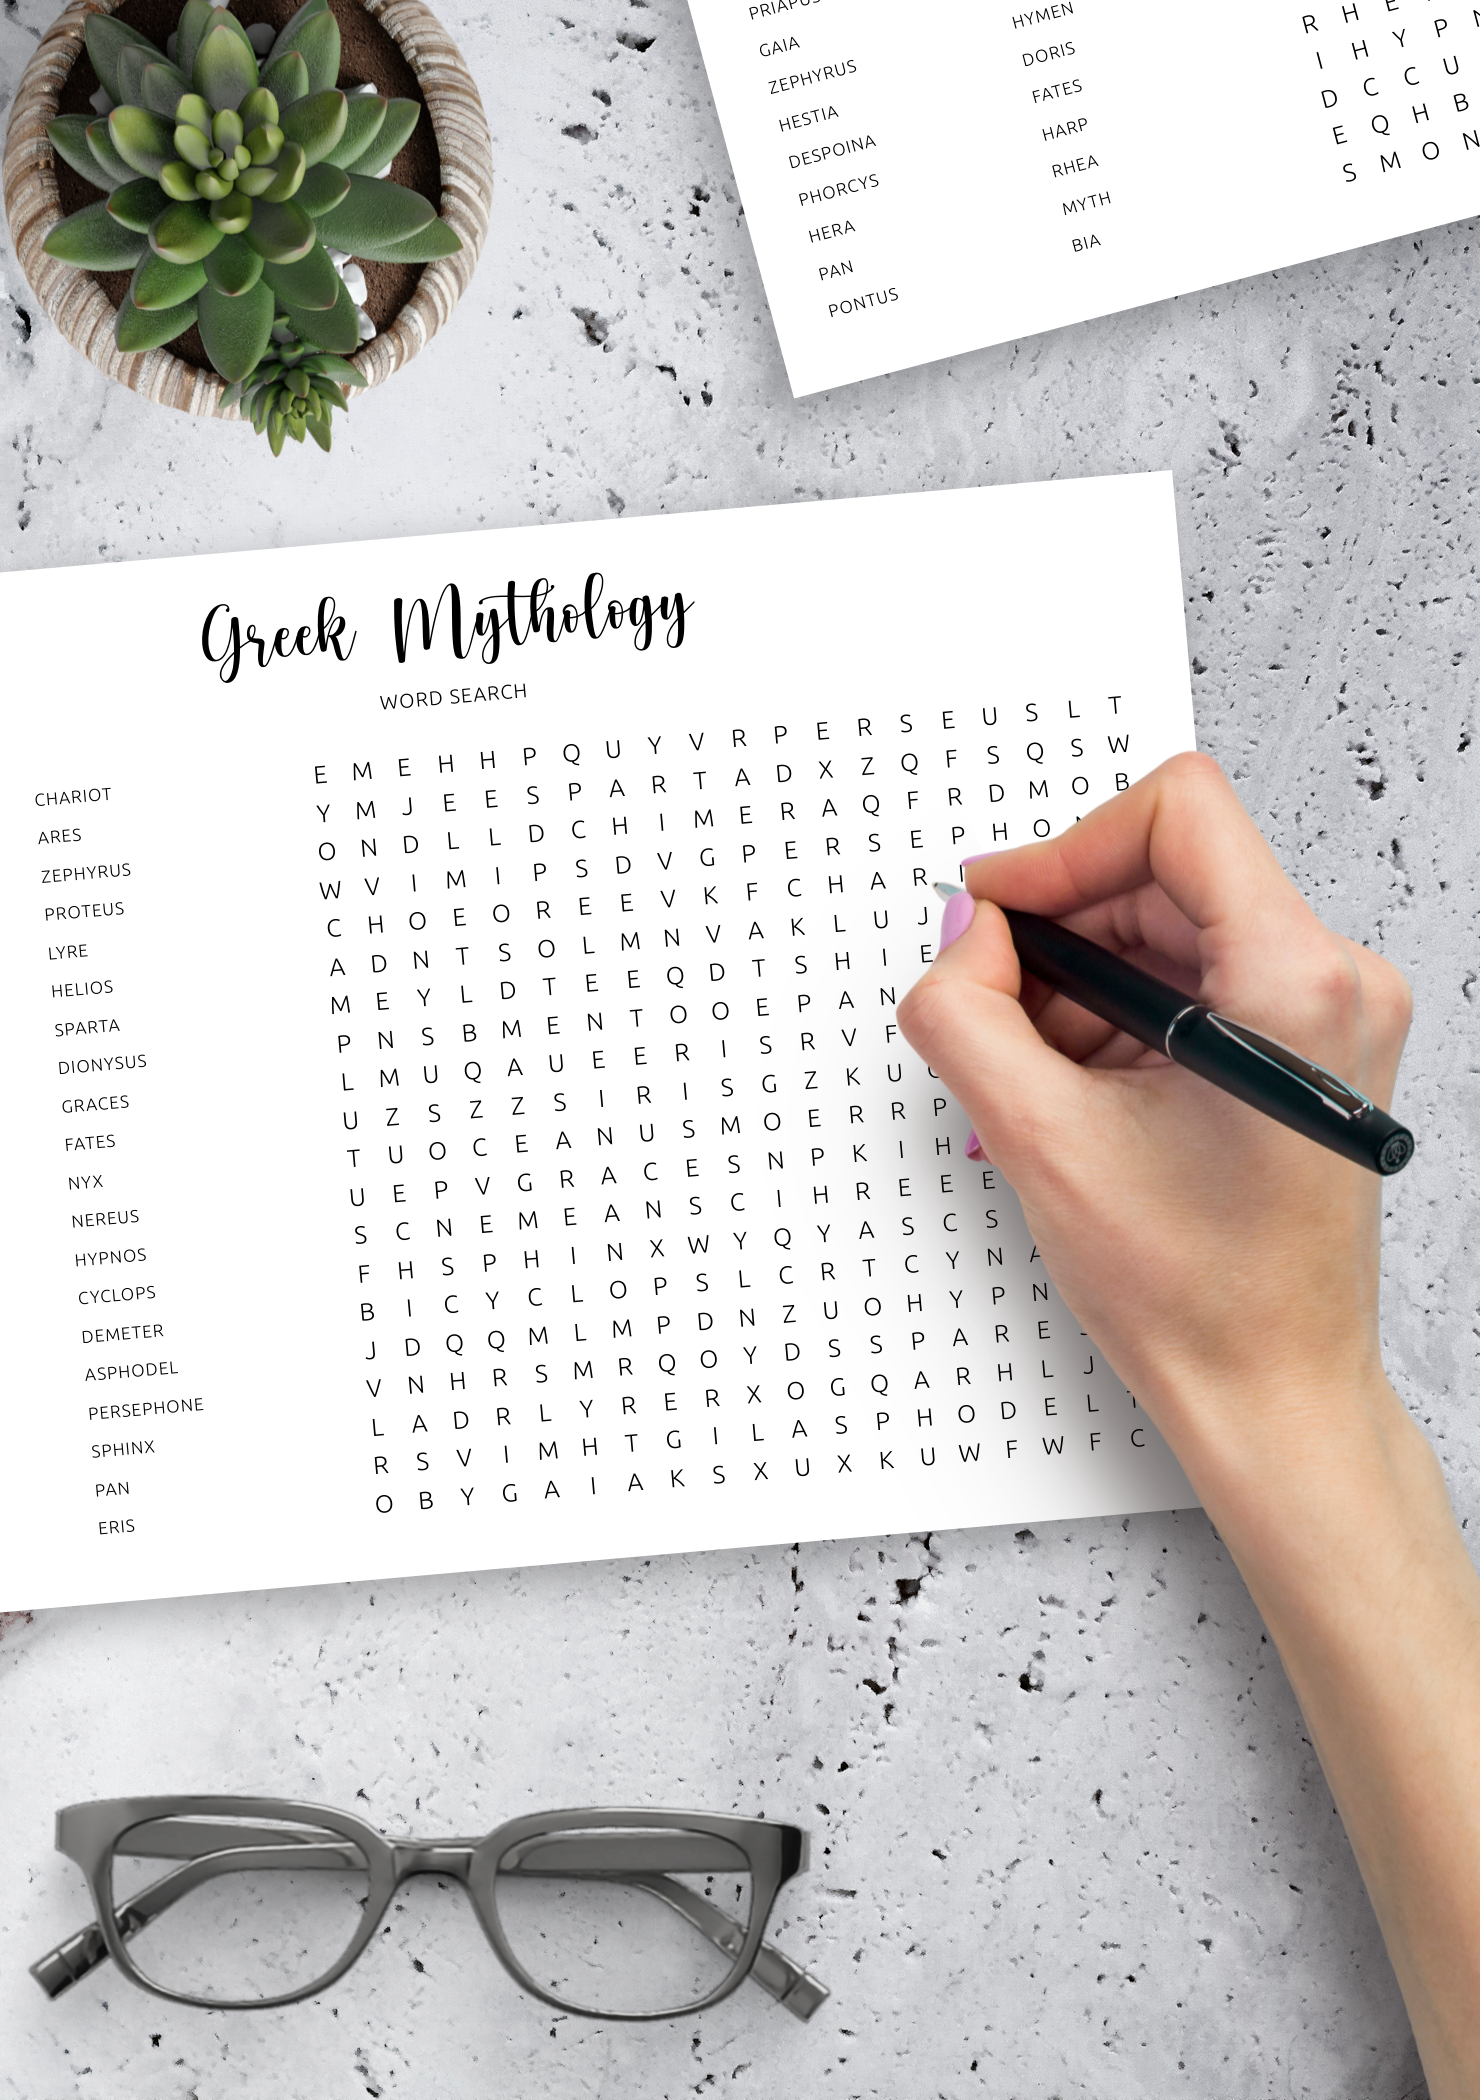 PRIAPUS
GAIA
ZEPHYRUS
HESTIA
DESPOINA
PHORCYS
HERA
PAN
PONTUS
HYMEN
DORIS
FATES
HARP
RHEA
MYTH
BIA
R H E
I H Y P
D C C U
E Q H B
S M O N
Greek Mythology
WORD SEARCH
CHARIOT
ARES
ZEPHYRUS
PROTEUS
LYRE
HELIOS
SPARTA
DIONYSUS
GRACES
FATES
NYX
NEREUS
HYPNOS
CYCLOPS
DEMETER
ASPHODEL
PERSEPHONE
SPHINX
PAN
ERIS
E M E H H P Q U Y V R P E R S E U S L T
Y M J E E S P A R T A D X Z Q F S Q S W
O N D L L D C H I M E R A Q F R D M O B
W V I M I P S D V G P E R S E P H O N
C H O E O R E E V K F C H A R I
A D N T S O L M N V A K L U J
M E Y L D T E E Q D T S H I E
P N S B M E N T O O E P A N
L M U Q A U E E R I S R V F
U Z S Z Z S I R I S G Z K U
T U O C E A N U S M O E R R P
U E P V G R A C E S N P K I H
S C N E M E A N S C I H R E E E
F H S P H I N X W Y Q Y A S C S
B I C Y C L O P S L C R T C Y N A
J D Q Q M L M P D N Z U O H Y P N
V N H R S M R Q O Y D S S P A R E
L A D R L Y R E R X O G Q A R H L J
R S V I M H T G I L A S P H O D E L
O B Y G A I A K S X U X K U W F W F C